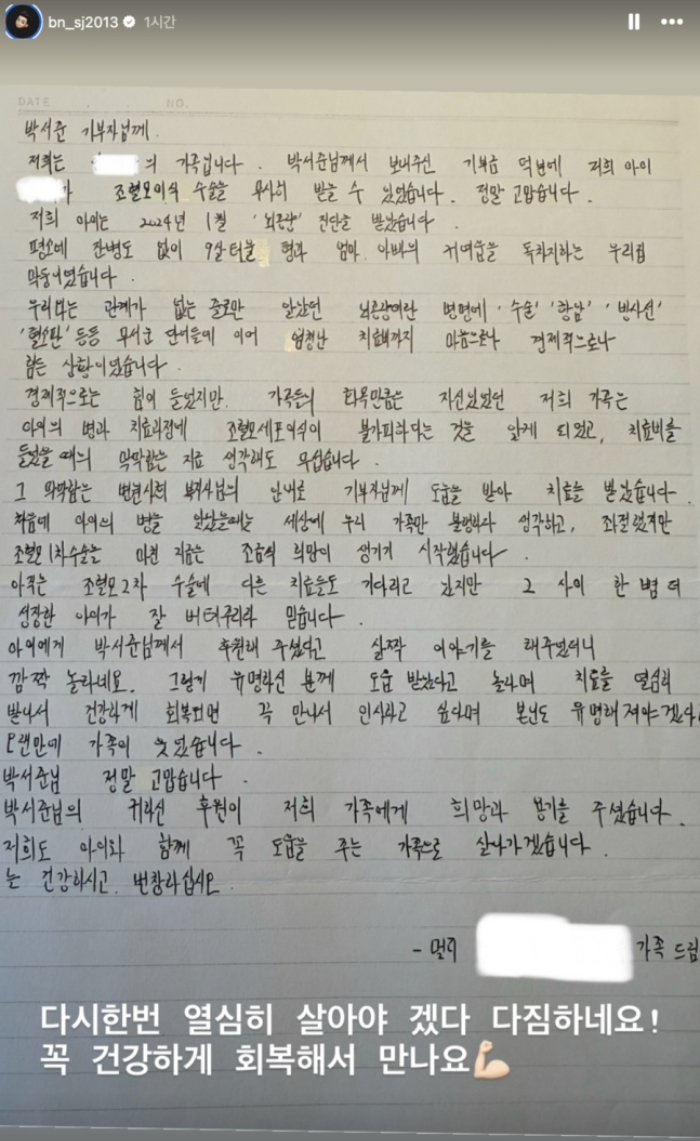 bn_sj2013 1시간
DATE . . NO.
박서준 기부자님께.
저희는 의 가족입니다. 박서준님께서 보내주신 기부금 덕분에 저희 아이
가 조혈모이식 수술을 무사히 받을 수 있었습니다. 정말 고맙습니다.
저희 아이는 2024년 1월 '뇌종양' 진단을 받았습니다.
평소에 잔병도 없이 9살 터울 형과 엄마 아빠의 귀여움을 독차지하는 우리집
막둥이였습니다.
우리와는 관계가 없는 줄로만 알았던 뇌종양이란 병명에 '수술' '항암' '방사선'
'혈소판' 등등 무서운 단어들에 이어 엄청난 치료비까지 마음으로나 경제적으로나
힘든 상황이었습니다.
경제적으로는 힘이 들었지만 가족들의 화목만큼은 자신있었던 저희 가족은
아이의 병과 치료과정에 조혈모세포이식이 불가피하다는 것을 알게 되었고, 치료비를
들었을 때의 막막함은 지금 생각해도 무섭습니다.
그 막막함은 병원사회 복지사님의 안내로 기부자님께 도움을 받아 치료를 받았습니다.
처음에 아이의 병을 알았을때는 세상에 우리 가족만 불행하다 생각하고, 좌절했지만
조혈모 1차수술을 마친 지금은 조금씩 희망이 생기기 시작했습니다.
아직은 조혈모 2차 수술에 다른 치료들도 기다리고 있지만 그 사이 한 뼘 더
성장한 아이가 잘 버텨주리라 믿습니다.
아이에게 박서준님께서 후원해 주셨다고 살짝 이야기를 해주었더니
깜짝 놀라네요. 그렇게 유명하신 분께 도움 받았다고 놀라며 치료를 열심히
받아서 건강하게 회복되면 꼭 만나서 인사하고 싶다며 본인도 유명해져야겠다고
오랜만에 가족이 웃었습니다.
박서준님 정말 고맙습니다.
박서준님의 귀하신 후원이 저희 가족에게 희망과 용기를 주셨습니다.
저희도 아이와 함께 꼭 도움을 주는 가족으로 살아가겠습니다.
는 건강하시고. 번창하십시오.
- 멀리 가족 드림
다시한번 열심히 살아야 겠다 다짐하네요!
꼭 건강하게 회복해서 만나요💪🏻